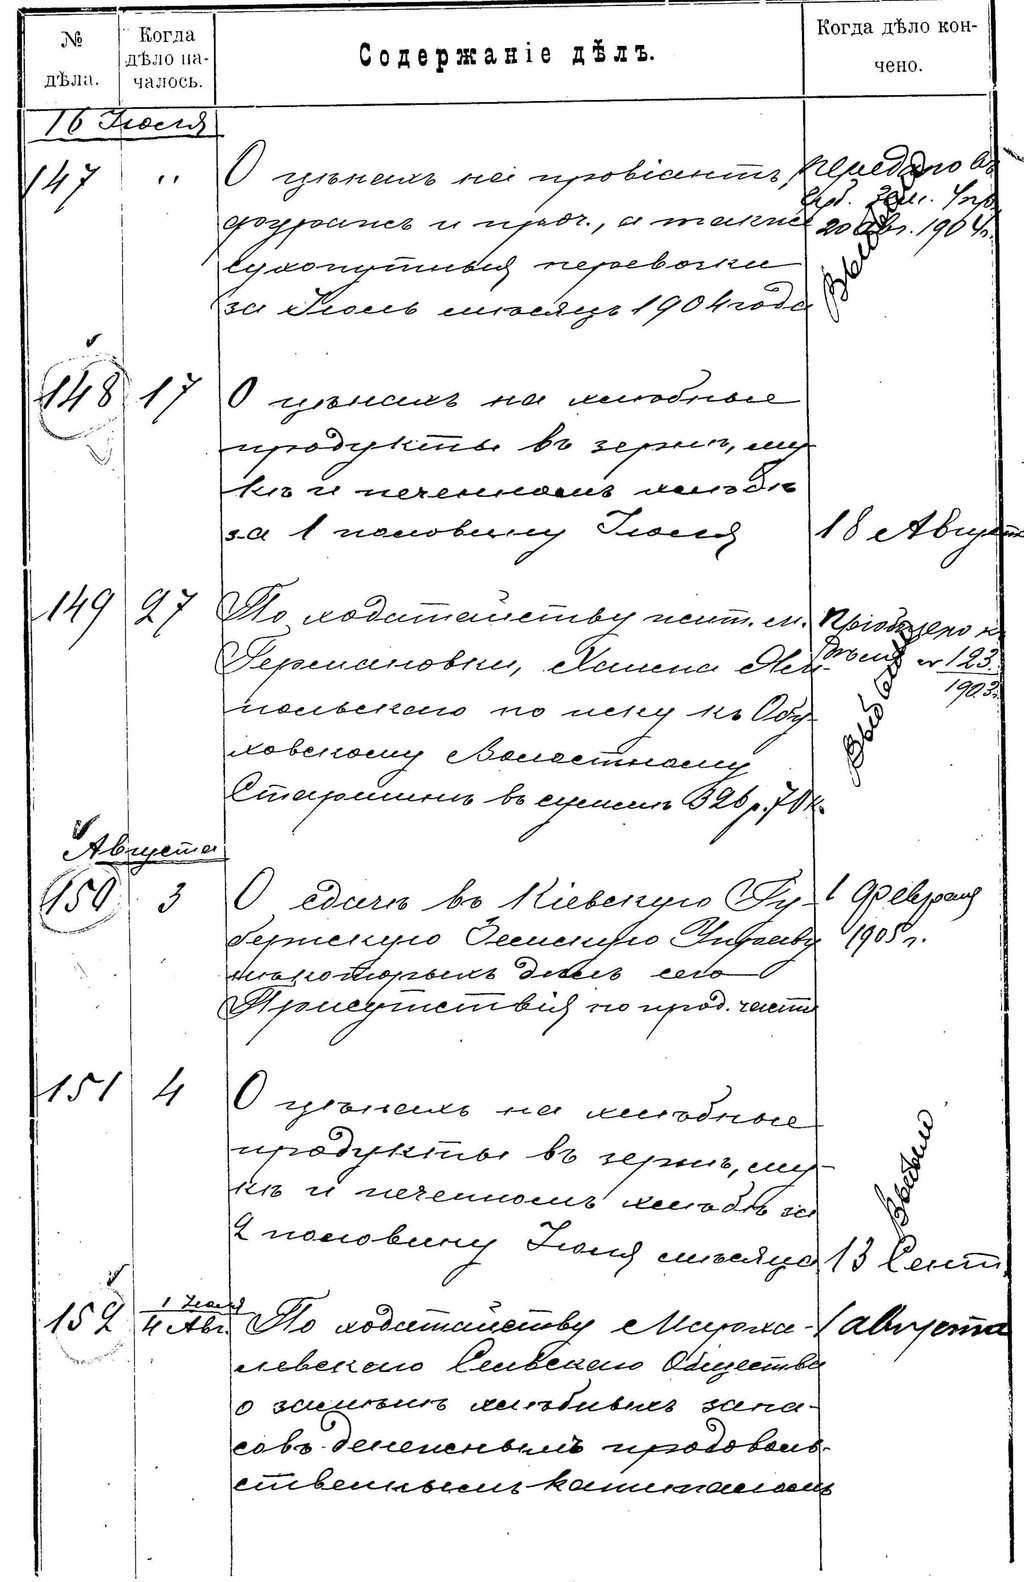 № дѣла.
Когда дѣло началось.
Содержаніе дѣлъ.
Когда дѣло кончено.
16 Іюля
147 " О цѣнахъ на провіантъ,
фуражъ и проч., а также
сухопутныя перевозки
за Іюль мѣсяцъ 1904 года
Передано въ
Губ. Зем. Упр.
20 Авг. 1904 г.
148 17 О цѣнахъ на хлѣбные
продукты въ зернѣ, му-
кѣ и печенномъ хлѣбѣ
за 1 половину Іюля
18 Августа
149 27 По ходатайству жит. м.
Германовки, Хаима
польскаго по иску къ Обу-
ховскому Волостному
Старшинѣ въ суммѣ 326 р. 70 к.
Пріобщено къ
дѣлу № 123
1903 г.
Августа
150 3 О сдачѣ въ Кіевскую Гу-
бернскую Земскую Управу
нѣкоторыхъ дѣлъ сего
Присутствія по прод. части
1 Февраля
1905 г.
151 4 О цѣнахъ на хлѣбные
продукты въ зернѣ, му-
кѣ и печенномъ хлѣбѣ за
2 половину Іюля мѣсяца
Выбыло
13 Сент.
152 1 Іюля
4 Авг. По ходатайству Мироха-
левскаго Сельскаго Общества
о замѣнѣ хлѣбныхъ запа-
совъ денежнымъ продоволь-
ственнымъ капиталомъ
1 августа